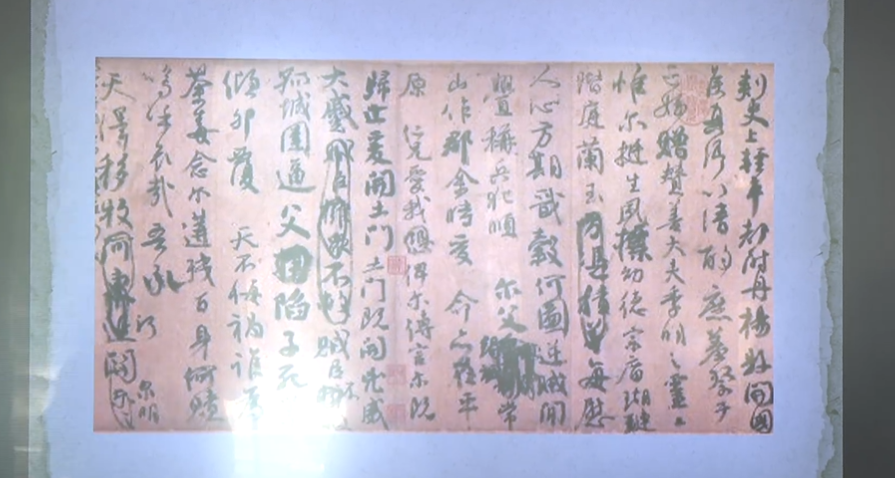 刺史上輕車都尉丹楊縣開國
侯真卿以清酌庶羞祭于
亡姪贈贊善大夫季明之靈曰
惟爾挺生夙標幼德宗廟瑚璉
階庭蘭玉方憑積善每慰
人心方期戩穀何圖逆賊閒
釁稱兵犯順爾父竭誠常
山作郡余時受命亦在平
原仁兄愛我俾爾傳言爾既
歸止爰開土門土門既開凶威
大蹙賊臣擁衆不救賊臣不
孤城圍逼父陷子死
傾卵覆天不悔禍誰為
荼毒念爾遘殘百身何贖
嗚乎哀哉吾承
天澤移牧河東近
爾明